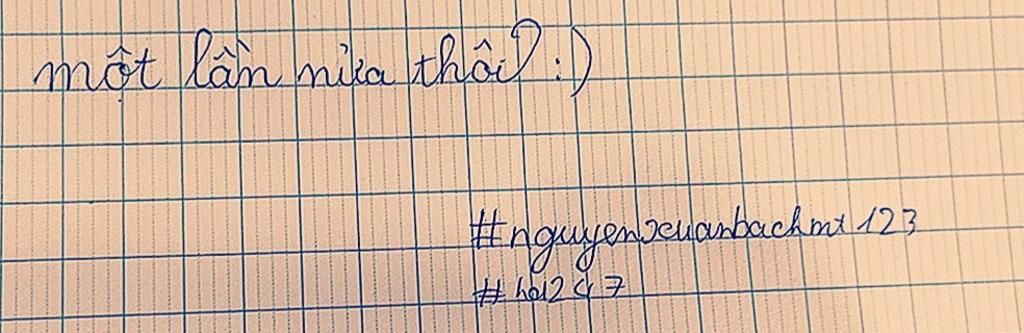 một lần nữa thôi? :)
#nguyenxuanbachmt123
#hoi247